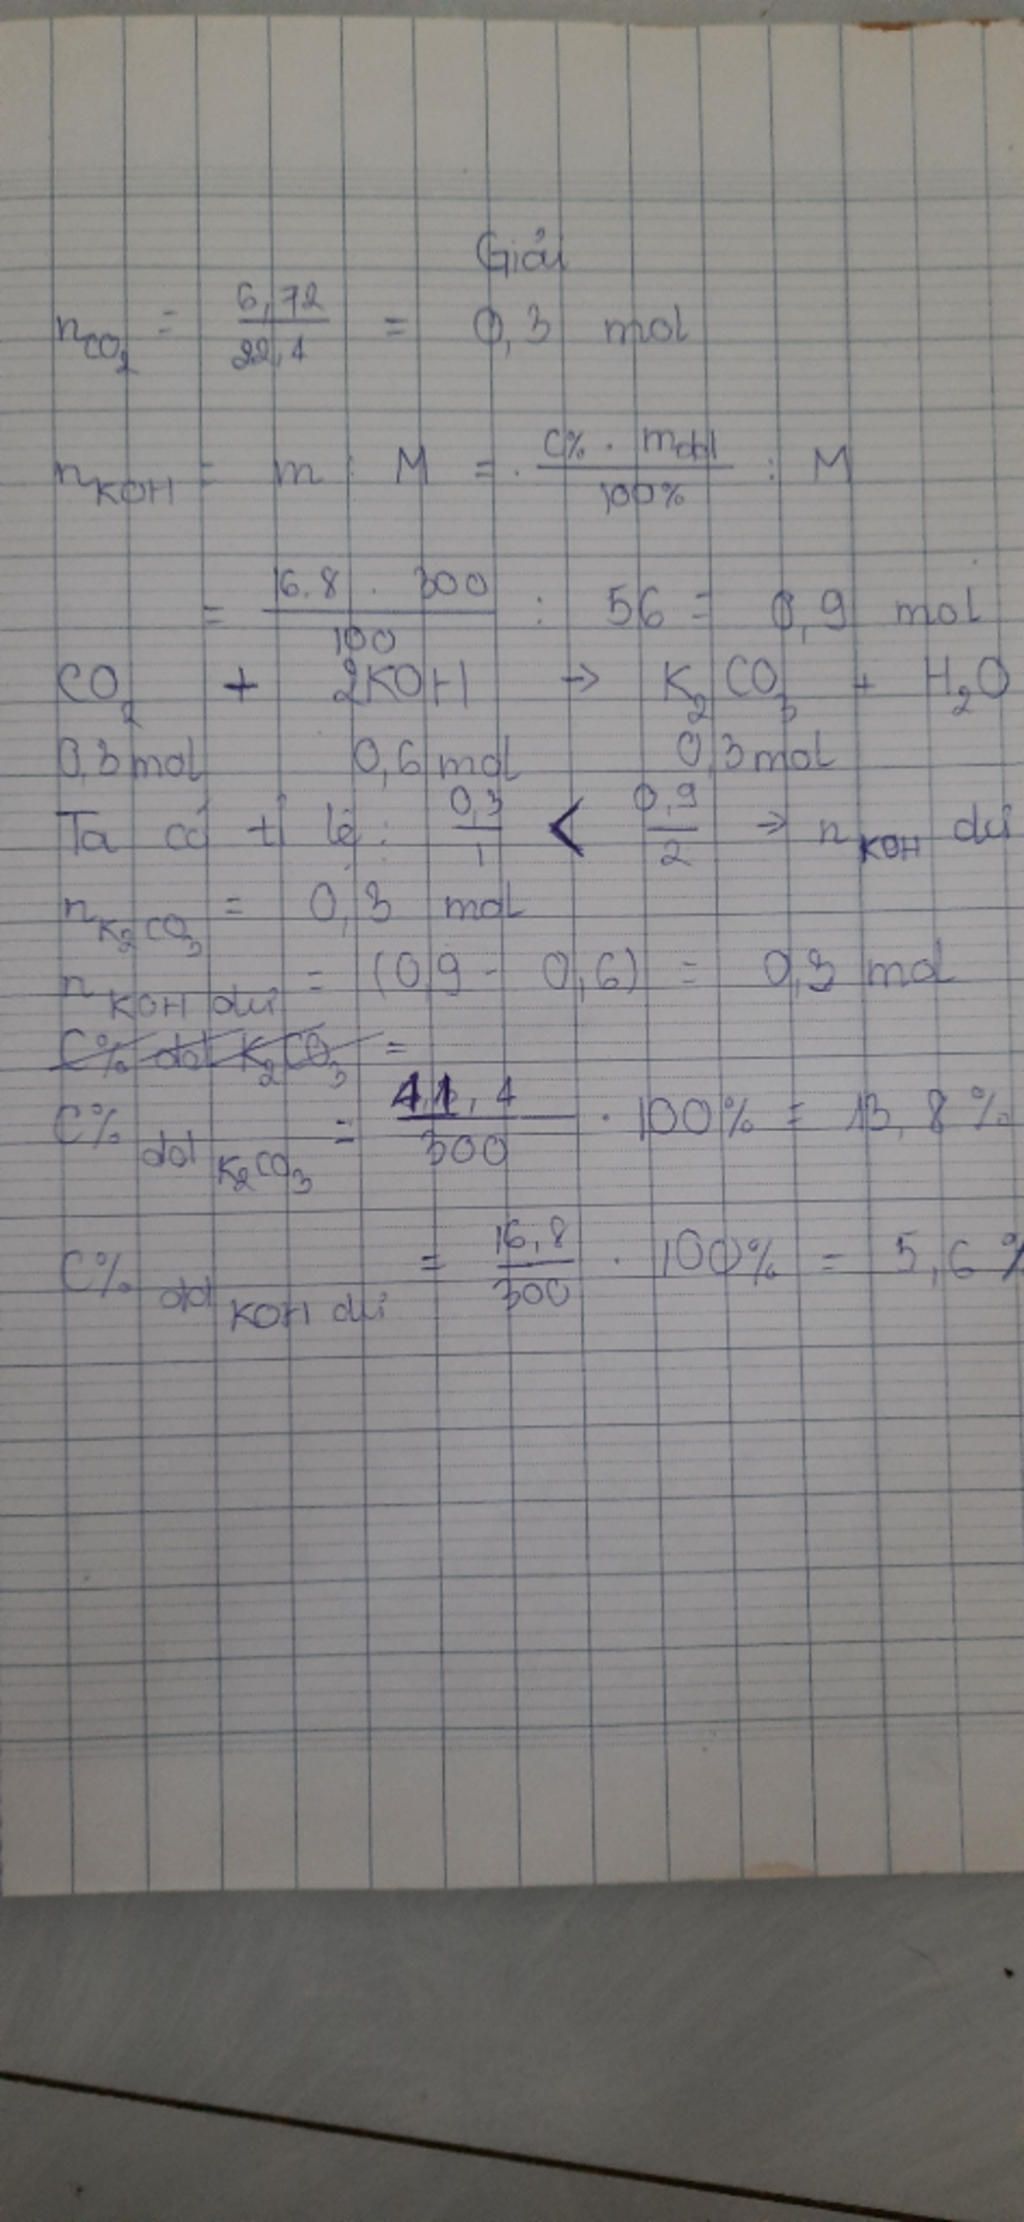 Giải
nCO2 = 6,72 / 22,4 = 0,3 mol
nKOH = m : M = C% . mdd / 100% : M
= 16.8 . 300 / 100 : 56 = 0,9 mol
CO2 + 2KOH → K2CO3 + H2O
0,3 mol 0,6 mol 0,3 mol
Ta có tỉ lệ: 0,3 / 1 < 0,9 / 2 → nKOH dư
nK2CO3 = 0,3 mol
nKOH dư = (0,9 - 0,6) = 0,3 mol
C% dd K2CO3 =
C% dd K2CO3 = 41,4 / 300 . 100% = 13,8%
C% dd KOH dư = 16,8 / 300 . 100% = 5,6%